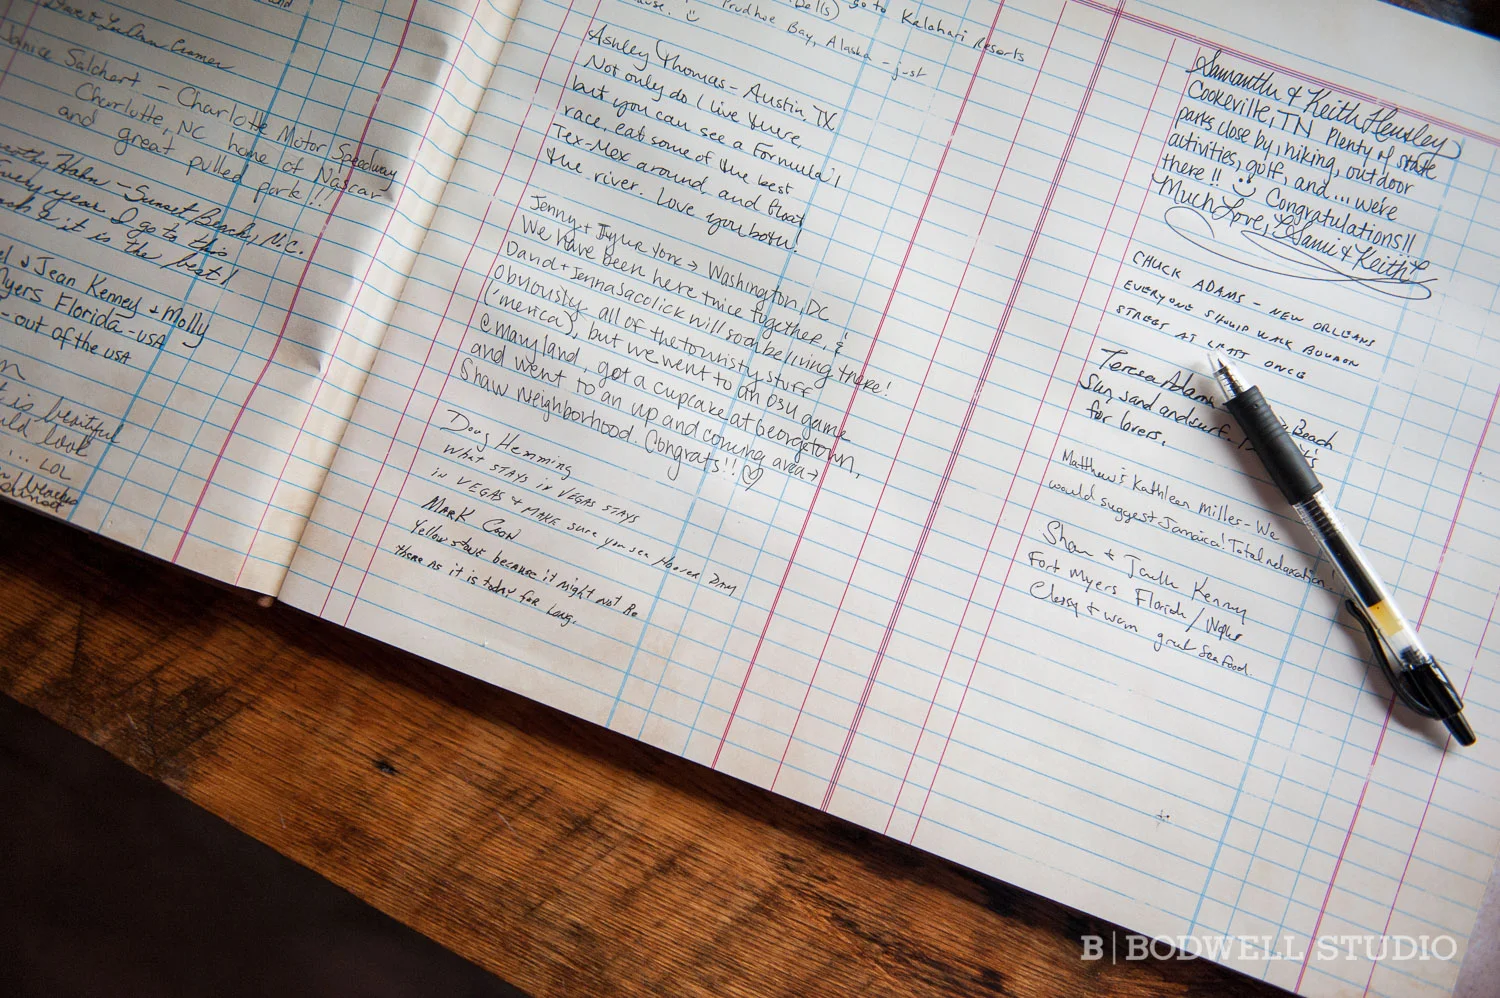 Janice Salchert - Charlotte Motor Speedway
Charlotte, NC home of Nascar
and great pulled pork!!
Hahn - Sunset Beach, N.C.
Every year I go to this
it is the best!
& Jean Kenney & Molly
Myers Florida - USA
- out of the USA
it is beautiful
would love
... LOL
go to Kalahari Resorts
Prudhoe
Bay, Alaska - just
Ashley Thomas - Austin, TX
Not only do I live there,
but you can see a Formula 1
race, eat some of the best
Tex-Mex around and float
the river. Love you both!
Jenny + York → Washington, DC
We have been here twice together &
David + Jenna Sacolick will soon be living there!
Obviously all of the touristy stuff
('merica), but we went to an OSU game
@ maryland, got a cupcake at Georgetown,
and went to an up and coming area →
Shaw Neighborhood. Congrats!! ♡
Doug Hemming
What stays in Vegas stays
in Vegas & make sure you see Hoover Dam
Mark Coon
Yellowstone because it might not be
there as it is today for long.
Samantha & Keith Hensley
Cookeville, TN Plenty of state
parks close by, hiking, outdoor
activities, golf, and... we're
there!! Congratulations!!
Much Love, Sami & Keith
CHUCK ADAMS - NEW ORLEANS
EVERYONE SHOULD WALK BOURBON
STREET AT LEAST ONCE
Teresa Adams Beach
Sun, sand and surf.
for lovers.
Matthew & Kathleen Milles - We
would suggest Jamaica! Total relaxation!
Shan + Kenney
Fort Myers Florida /
+ warm great seafood.
B | BODWELL STUDIO